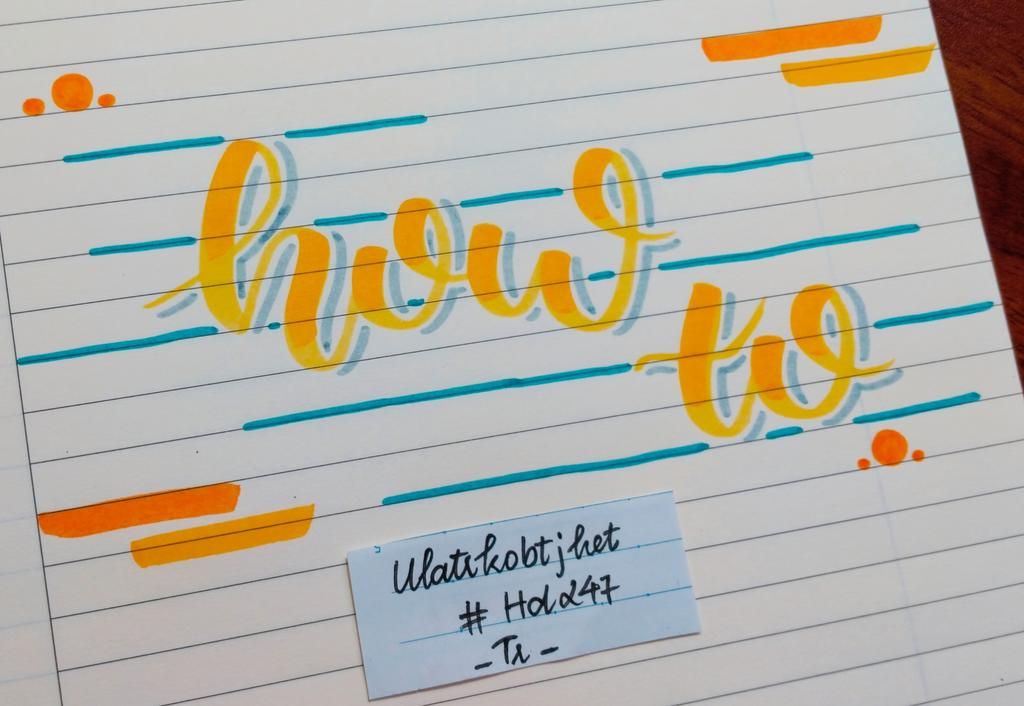 how
to
Ulatikobtjhet
# Hd247
- Tr -